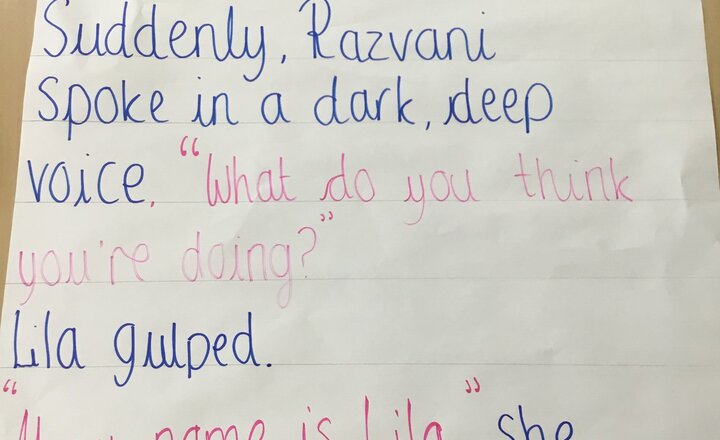 Suddenly, Razvani
Spoke in a dark, deep
voice, "What do you think
you're doing?"
Lila gulped.
"My name is Lila" she